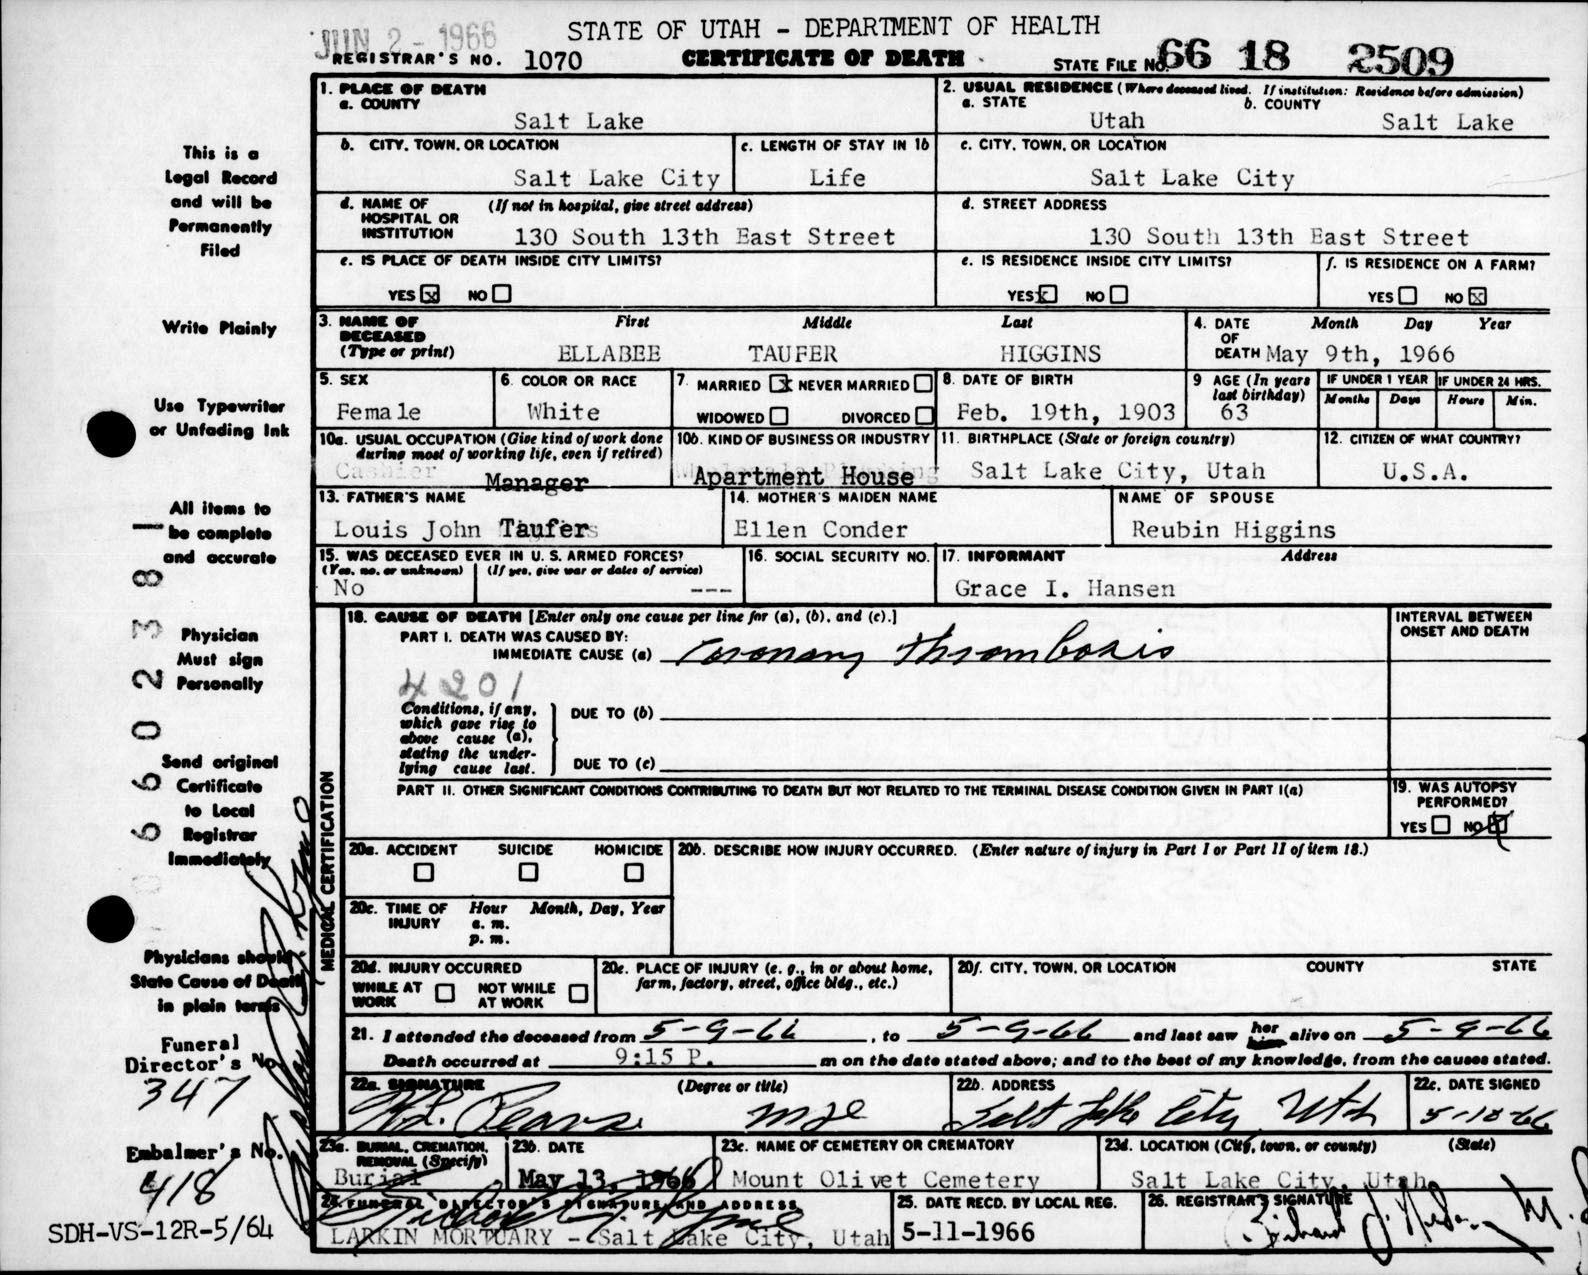 JUN 2 - 1966
STATE OF UTAH - DEPARTMENT OF HEALTH
REGISTRAR'S NO. 1070
CERTIFICATE OF DEATH
STATE FILE NO. 66 18 2509
1. PLACE OF DEATH
a. COUNTY
Salt Lake
2. USUAL RESIDENCE (Where deceased lived. If institution: Residence before admission)
a. STATE b. COUNTY
Utah Salt Lake
b. CITY, TOWN, OR LOCATION
Salt Lake City
c. LENGTH OF STAY IN 1b
Life
c. CITY, TOWN, OR LOCATION
Salt Lake City
d. NAME OF HOSPITAL OR INSTITUTION (If not in hospital, give street address)
130 South 13th East Street
d. STREET ADDRESS
130 South 13th East Street
e. IS PLACE OF DEATH INSIDE CITY LIMITS?
YES x NO
e. IS RESIDENCE INSIDE CITY LIMITS?
YES x NO
f. IS RESIDENCE ON A FARM?
YES NO x
3. NAME OF DECEASED (Type or print)
First Middle Last
ELLABEE TAUFER HIGGINS
4. DATE OF DEATH Month Day Year
May 9th, 1966
5. SEX
Female
6. COLOR OR RACE
White
7. MARRIED x NEVER MARRIED
WIDOWED DIVORCED
8. DATE OF BIRTH
Feb. 19th, 1903
9 AGE (In years last birthday)
63
IF UNDER 1 YEAR
Months Days
IF UNDER 24 HRS.
Hours Min.
10a. USUAL OCCUPATION (Give kind of work done during most of working life, even if retired)
Cashier Manager
10b. KIND OF BUSINESS OR INDUSTRY
Apartment House
11. BIRTHPLACE (State or foreign country)
Salt Lake City, Utah
12. CITIZEN OF WHAT COUNTRY?
U.S.A.
13. FATHER'S NAME
Louis John Taufer
14. MOTHER'S MAIDEN NAME
Ellen Conder
NAME OF SPOUSE
Reubin Higgins
15. WAS DECEASED EVER IN U. S. ARMED FORCES?
(Yes, no, or unknown) (If yes, give war or dates of service)
No ---
16. SOCIAL SECURITY NO.
17. INFORMANT Address
Grace I. Hansen
MEDICAL CERTIFICATION
18. CAUSE OF DEATH [Enter only one cause per line for (a), (b), and (c).]
PART I. DEATH WAS CAUSED BY:
IMMEDIATE CAUSE (a) Coronary Thrombosis
4201
Conditions, if any, which gave rise to above cause (a), stating the underlying cause last.
DUE TO (b)
DUE TO (c)
INTERVAL BETWEEN ONSET AND DEATH
PART II. OTHER SIGNIFICANT CONDITIONS CONTRIBUTING TO DEATH BUT NOT RELATED TO THE TERMINAL DISEASE CONDITION GIVEN IN PART I(a)
19. WAS AUTOPSY PERFORMED?
YES NO x
20a. ACCIDENT SUICIDE HOMICIDE
20b. DESCRIBE HOW INJURY OCCURRED. (Enter nature of injury in Part I or Part II of item 18.)
20c. TIME OF INJURY Hour Month, Day, Year
a. m.
p. m.
20d. INJURY OCCURRED
WHILE AT WORK NOT WHILE AT WORK
20e. PLACE OF INJURY (e. g., in or about home, farm, factory, street, office bldg., etc.)
20f. CITY, TOWN, OR LOCATION COUNTY STATE
21. I attended the deceased from 5-9-66, to 5-9-66 and last saw her alive on 5-9-66
Death occurred at 9:15 P. m on the date stated above; and to the best of my knowledge, from the causes stated.
22a. SIGNATURE (Degree or title)
22b. ADDRESS
Salt Lake City Utah
22c. DATE SIGNED
5-10-66
23a. BURIAL, CREMATION, REMOVAL (Specify)
Burial
23b. DATE
May 13, 1966
23c. NAME OF CEMETERY OR CREMATORY
Mount Olivet Cemetery
23d. LOCATION (City, town, or county) (State)
Salt Lake City, Utah
24. FUNERAL DIRECTOR'S SIGNATURE AND ADDRESS
LARKIN MORTUARY - Salt Lake City, Utah
25. DATE RECD. BY LOCAL REG.
5-11-1966
26. REGISTRAR'S SIGNATURE
This is a
Legal Record
and will be
Permanently
Filed
Write Plainly
Use Typewriter
or Unfading Ink
All items to
be complete
and accurate
Physician
Must sign
Personally
Send original
Certificate
to Local
Registrar
Immediately
Physicians should
State Cause of Death
in plain terms
Funeral
Director's No.
347
Embalmer's No.
418
SDH-VS-12R-5/64
6 6 0 2 3 8 1